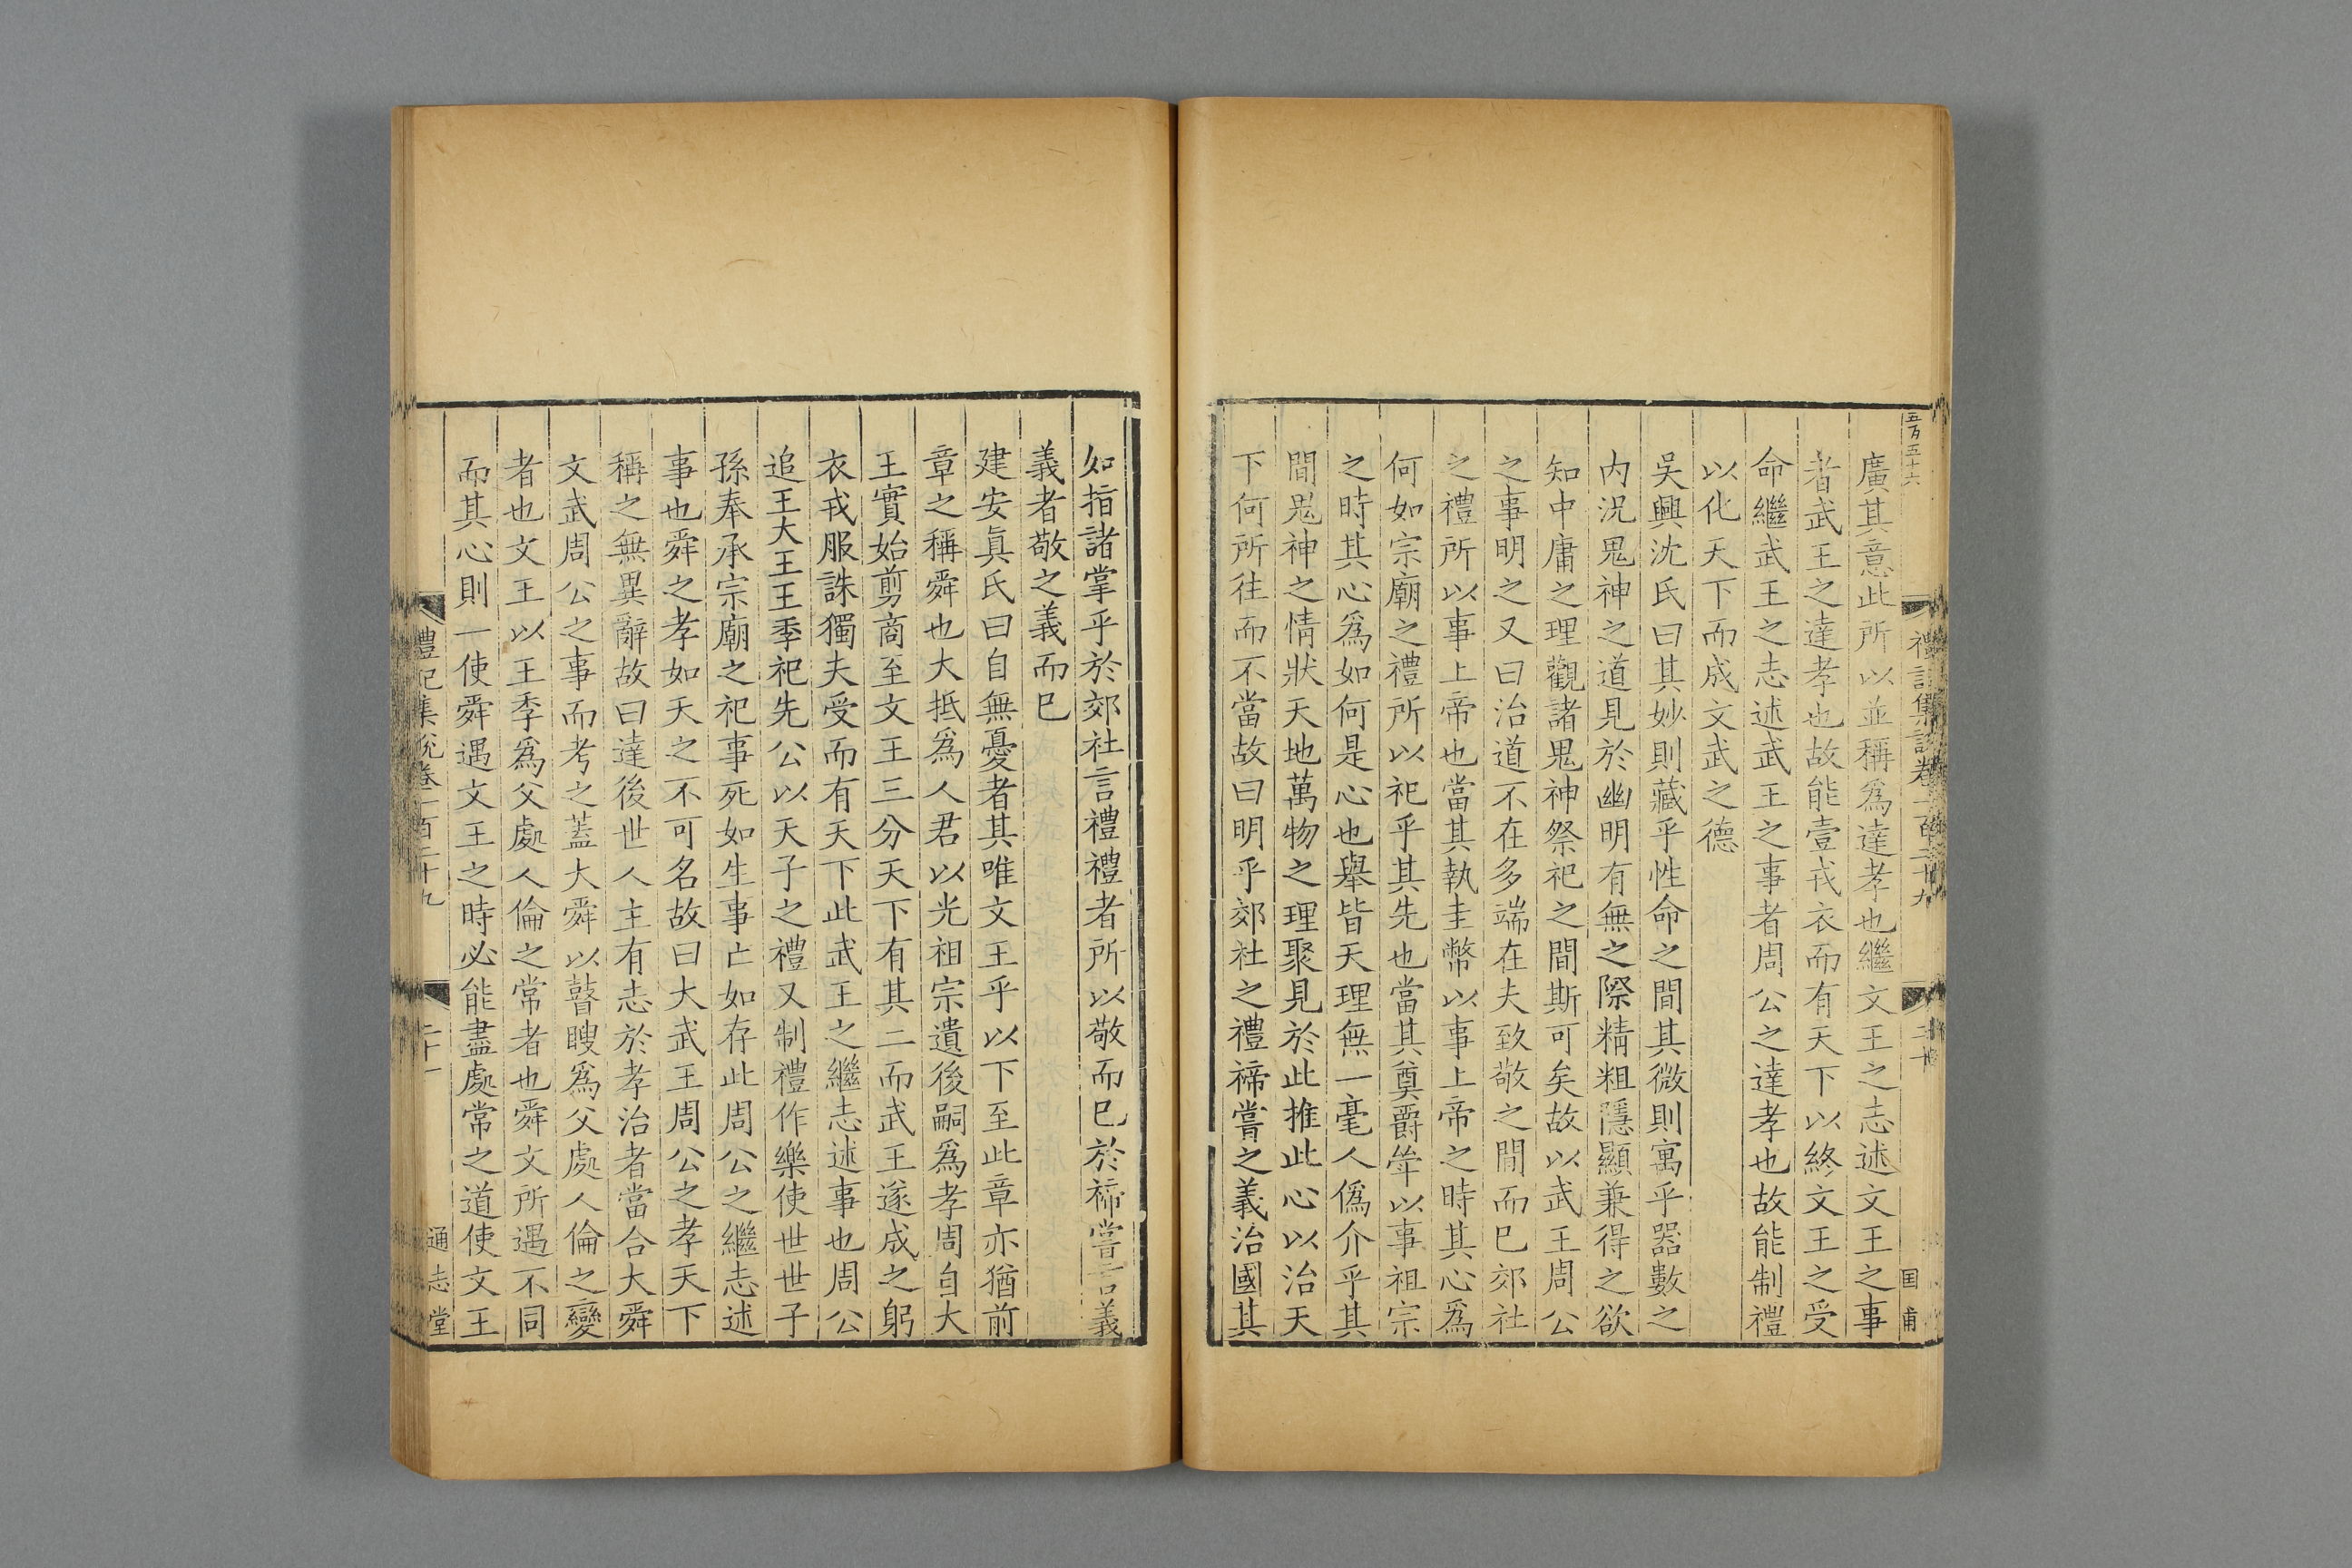 廣其意此所以並稱爲達孝也繼文王之志述文王之事
者武王之達孝也故能壹戎衣而有天下以終文王之受
命繼武王之志述武王之事者周公之達孝也故能制禮
以化天下而成文武之德
吳興沈氏曰其妙則藏乎性命之間其微則寓乎器數之
内況鬼神之道見於幽明有無之際精粗隱顯兼得之欲
知中庸之理觀諸鬼神祭祀之間斯可矣故以武王周公
之事明之又曰治道不在多端在夫致敬之間而已郊社
之禮所以事上帝也當其執圭幣以事上帝之時其心爲
何如宗廟之禮所以祀乎其先也當其奠爵斚以事祖宗
之時其心爲如何是心也舉皆天理無一毫人僞介乎其
間鬼神之情狀天地萬物之理聚見於此推此心以治天
下何所往而不當故曰明乎郊社之禮禘嘗之義治國其
如指諸掌乎於郊社言禮禮者所以敬而已於禘嘗言義
義者敬之義而已
建安眞氏曰自無憂者其唯文王乎以下至此章亦猶前
章之稱舜也大抵爲人君以光祖宗遺後嗣爲孝周自大
王實始剪商至文王三分天下有其二而武王遂成之躬
衣戎服誅獨夫受而有天下此武王之繼志述事也周公
追王大王王季祀先公以天子之禮又制禮作樂使世世子
孫奉承宗廟之祀事死如生事亡如存此周公之繼志述
事也舜之孝如天之不可名故曰大武王周公之孝天下
稱之無異辭故曰達後世人主有志於孝治者當合大舜
文武周公之事而考之蓋大舜以瞽瞍爲父處人倫之變
者也文王以王季爲父處人倫之常者也舜文所遇不同
而其心則一使舜遇文王之時必能盡處常之道使文王
禮記集說卷一百二十九
二十一
通志堂